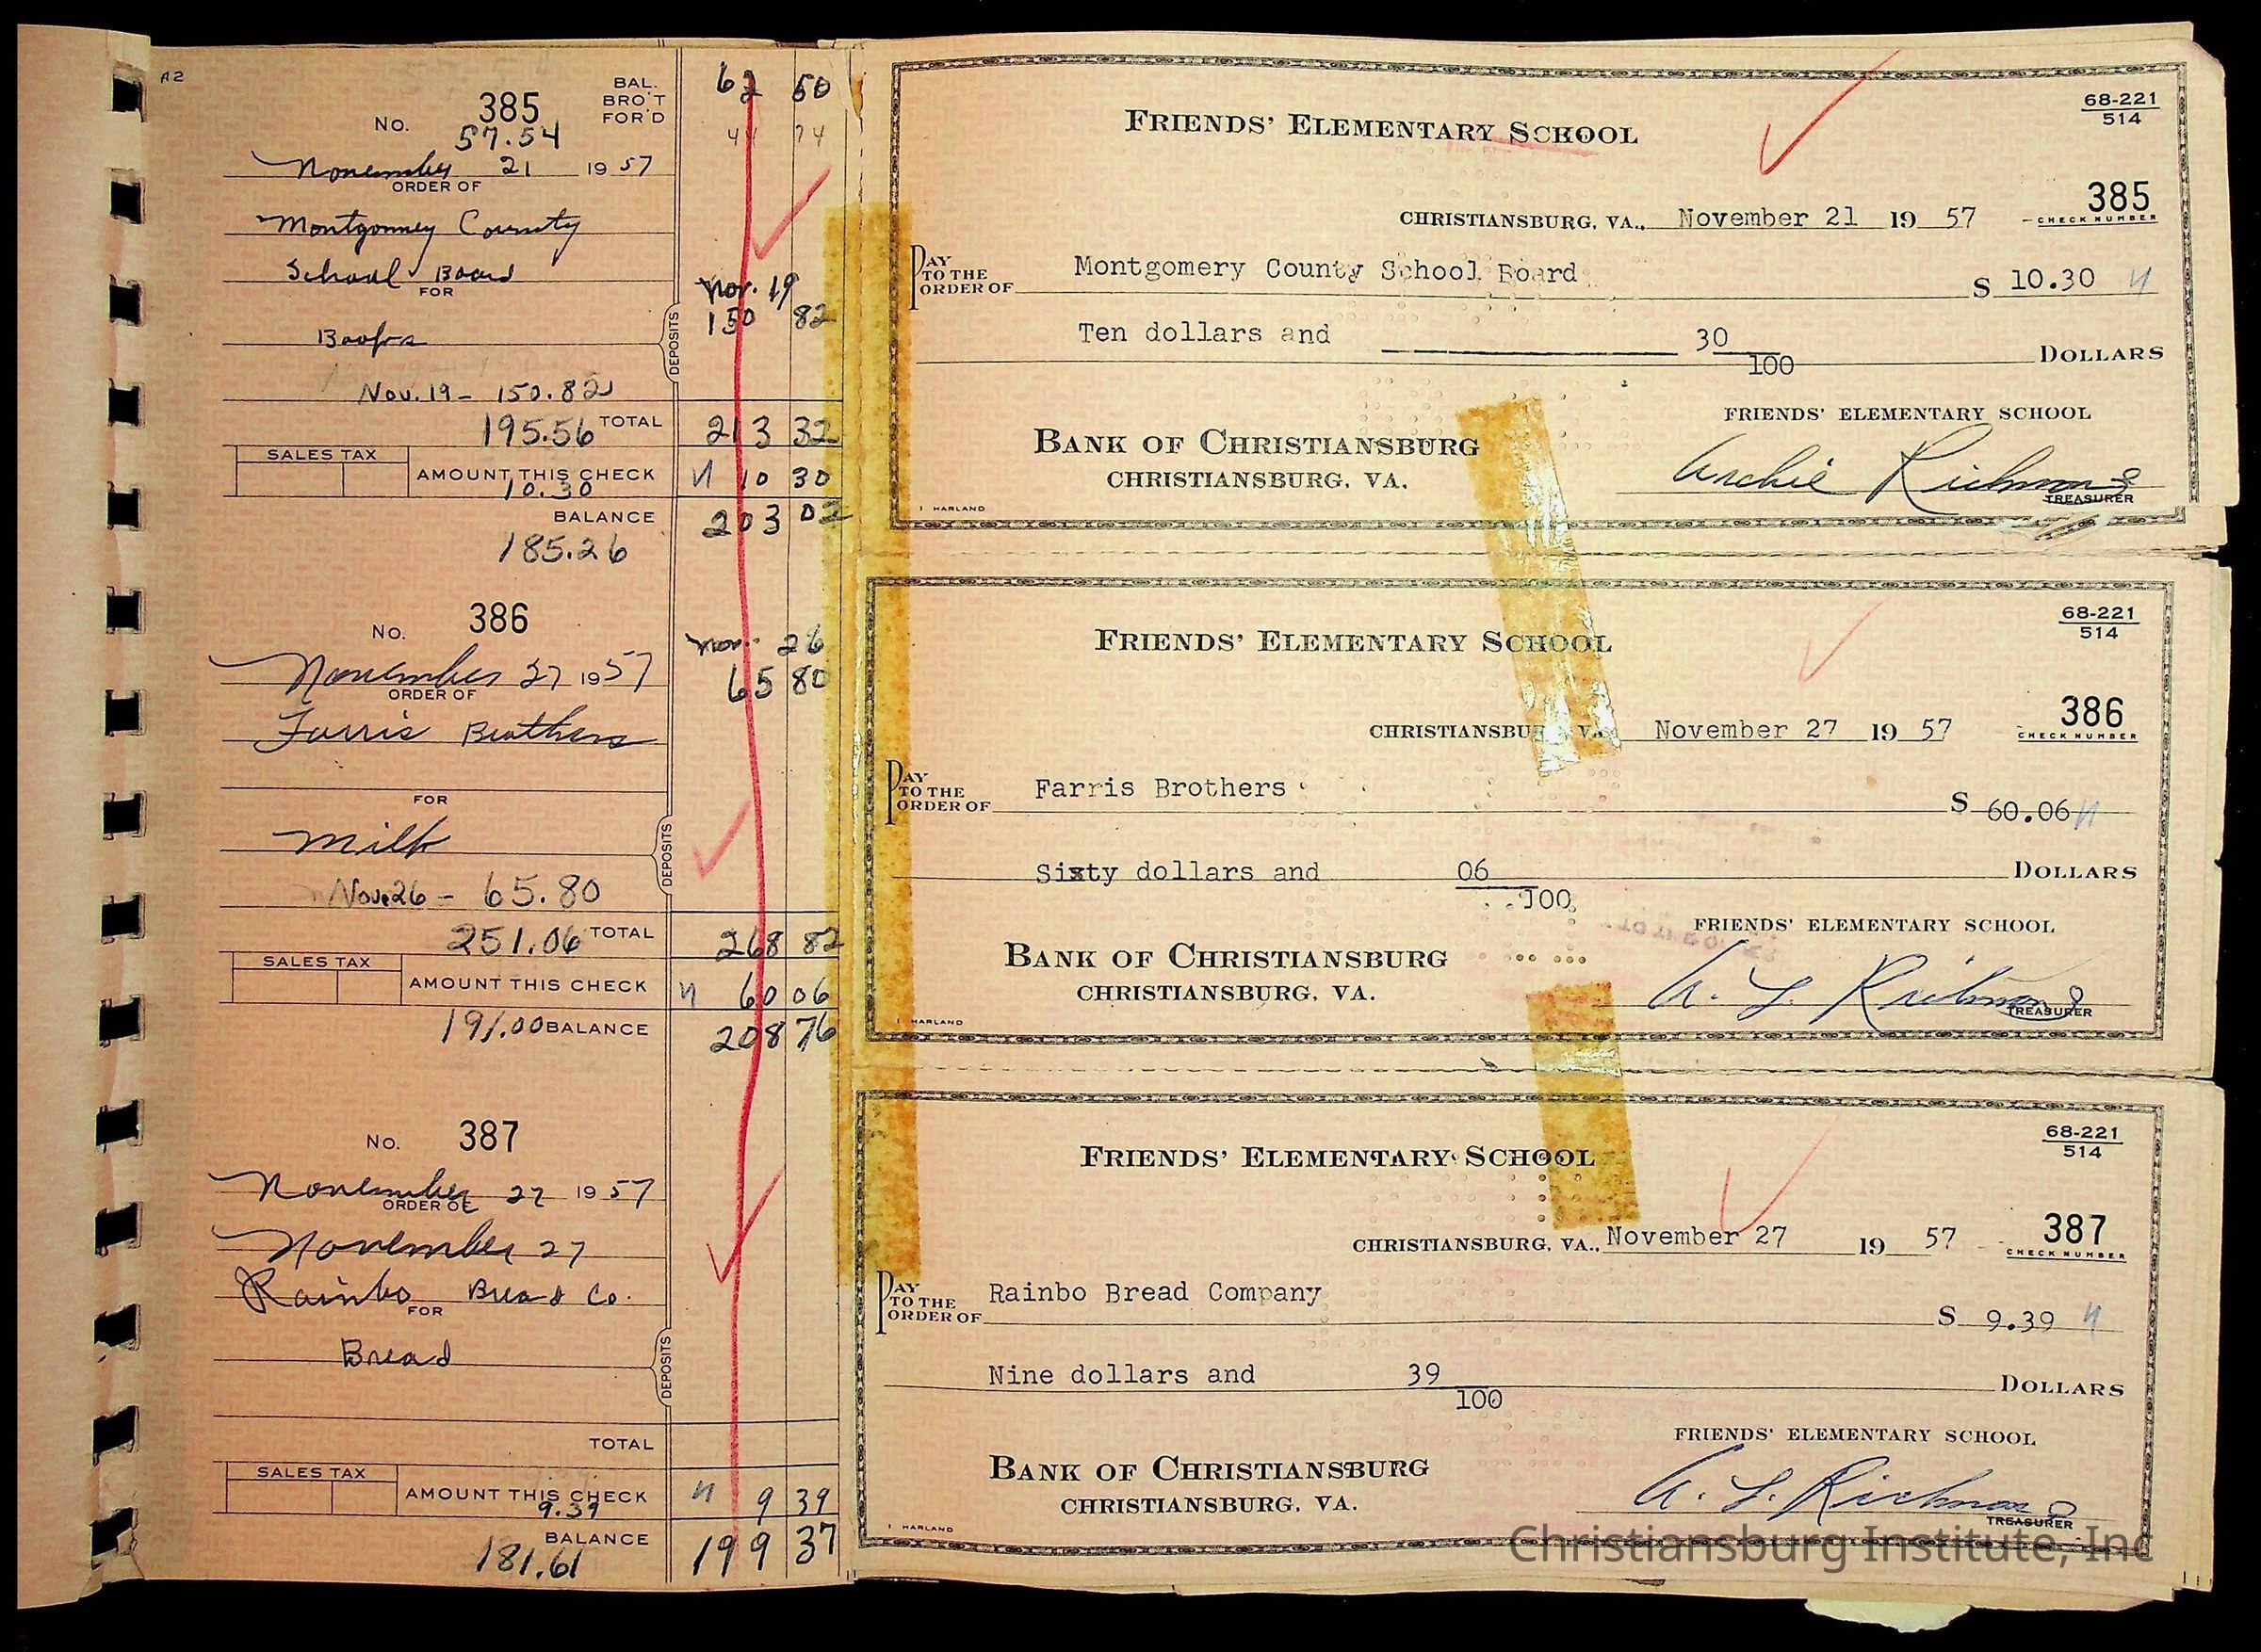 A2
No. 385
BAL.
BRO'T
FOR'D
62 50
57.54
44 74
November 21 1957
ORDER OF
Montgomery County
School Board
FOR
Books
Nov. 19
150 82
DEPOSITS
Nov. 19 - 150.82
195.56 TOTAL 213 32
SALES TAX
AMOUNT THIS CHECK 10 30
10.30
BALANCE 203 02
185.26
No. 386
Nov. 26
65 80
November 27 1957
ORDER OF
Farris Brothers
FOR
Milk
DEPOSITS
Nov. 26 - 65.80
251.06 TOTAL 268 82
SALES TAX
AMOUNT THIS CHECK 60 06
191.00 BALANCE 208 76
No. 387
November 27 1957
ORDER OF
November 27
Rainbo Bread Co.
FOR
Bread
DEPOSITS
TOTAL
SALES TAX
AMOUNT THIS CHECK 9 39
9.39
BALANCE 199 37
181.61
FRIENDS' ELEMENTARY SCHOOL
68-221
514
385
CHECK NUMBER
CHRISTIANSBURG, VA., November 21 19 57
PAY
TO THE
ORDER OF Montgomery County School Board $ 10.30
Ten dollars and 30
100 DOLLARS
FRIENDS' ELEMENTARY SCHOOL
BANK OF CHRISTIANSBURG
CHRISTIANSBURG, VA.
Archie Richmond
TREASURER
HARLAND
FRIENDS' ELEMENTARY SCHOOL
68-221
514
386
CHECK NUMBER
CHRISTIANSBU VA November 27 19 57
PAY
TO THE
ORDER OF Farris Brothers $ 60.06
Sixty dollars and 06
100 DOLLARS
FRIENDS' ELEMENTARY SCHOOL
BANK OF CHRISTIANSBURG
CHRISTIANSBURG, VA.
A. L. Richmond
TREASURER
HARLAND
FRIENDS' ELEMENTARY SCHOOL
68-221
514
387
CHECK NUMBER
CHRISTIANSBURG, VA., November 27 19 57
PAY
TO THE
ORDER OF Rainbo Bread Company $ 9.39
Nine dollars and 39
100 DOLLARS
FRIENDS' ELEMENTARY SCHOOL
BANK OF CHRISTIANSBURG
CHRISTIANSBURG, VA.
A. L. Richmond
TREASURER
HARLAND
Christiansburg Institute, Inc